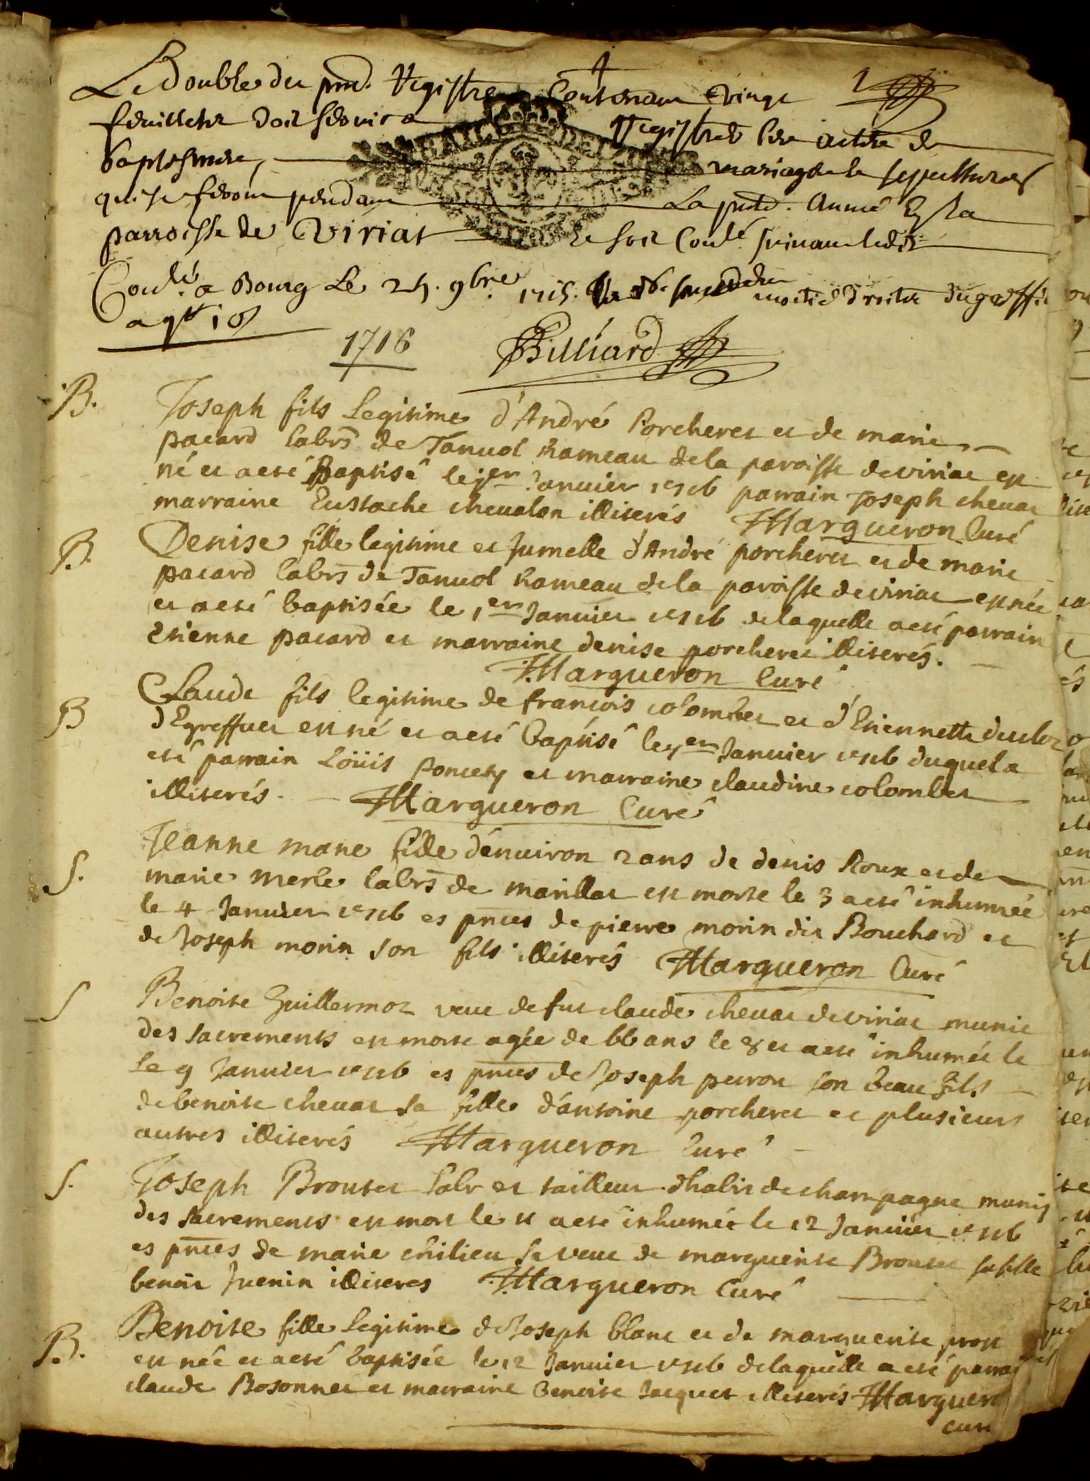 Le Double du pnt. Registre Contenant vingt 1
feuillets doit servir a Registrer les actes de
baptesmes, mariage & sepultures
qui se feront pendant La pnte. Année En la
parroisse de Viriat
Coulé a Bourg Le 24. 9bre 1715. moitié droits du greffe
1716 Billiard
B. Joseph fils Legitime d'André Porcheret et de marie
pacard labrs de Tanvol hameau de la paroisse de viriat est
né et a eté Baptisé le 1er Janvier 1716 parrain Joseph chevat
marraine Eustache chevalon illiterés Margueron Curé
B. Denise fille legitime et Jumelle d'André porcheret et de marie
pacard labrs de Tanvol hameau de la paroisse de viriat est née
et a eté baptisée le 1er Janvier 1716 de laquelle a eté parrain
Etienne pacard et marraine denise porcheret illiterés.
Margueron Curé
B Claude fils legitime de francois colomber et d'Etiennette
d'Egreffuet est né et a eté baptisé le Janvier 1716 duquel a
eté parrain Loüis poncety et marraine claudine colomber
illiterés. Margueron Curé
S. Jeanne marie fille d'environ 2 ans de denis Roux et de
marie merle labrs de marillat est morte le 3 a eté inhumée
le 4 Janvier 1716 es pnces de pierre morin dit Bouchard et
de Joseph morin son fils illiterés Margueron Curé
S Benoite Guillermoz veuve de fut claude chevat de viriat munie
des sacrements est morte agée de 66 ans le 8 et a eté inhumée le
le 9 Janvier 1716 es pnces de Joseph peiron son beau fils
de benoite chevat sa fille d'antoine porcheret et plusieurs
autres illiterés Margueron Curé
S. Joseph Brouter labr et tailleur d'habit de champagne munis
des sacrements est mort le 11 a eté inhumée le 12 Janvier 1716
es pnces de marie sa veuve de marguerite Brouter sa fille
benoit Juenin illiteres Margueron Curé
B. Benoite fille legitime de Joseph blanc et de marguerite prost
est née et a eté baptisée le 12 Janvier 1716 de laquelle a eté parrai
claude Bosonnet et marraine Benoite Jacquet illiterés Margueron
curé